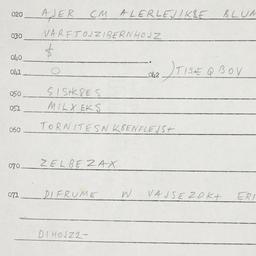 020 AJER CM ALERLEJIKSE BLUM
030 VARFTOJZIBERNHOJZ
040 $
041 O 042 )TISE Q BOV
050 SISKSES
051 MILXEKS
060 TORNITESN KSENFLEJST
070 ZELBEZAX
071 DIFRUME W VAJSEZOKT ERI
DIHOJZZ-